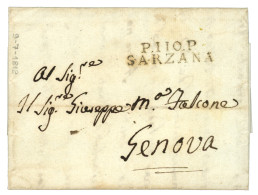 9-7-1812
P.110.P
SARZANA
Al Sig.re
Il Sig.re Giuseppe M.a Falcone
Genova